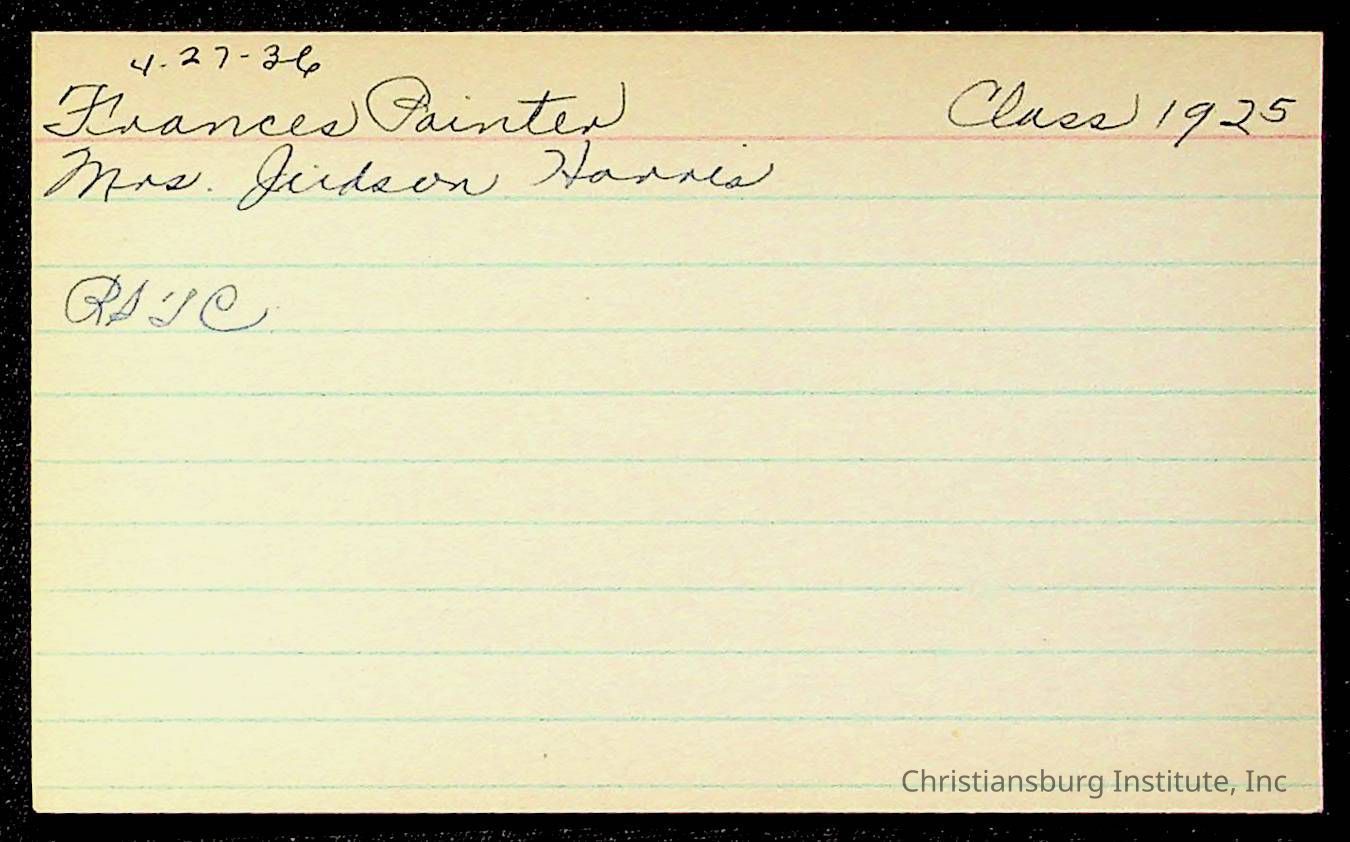 4-27-36
Frances Painter Class 1925
Mrs. Judson Harris
RSTC
Christiansburg Institute, Inc